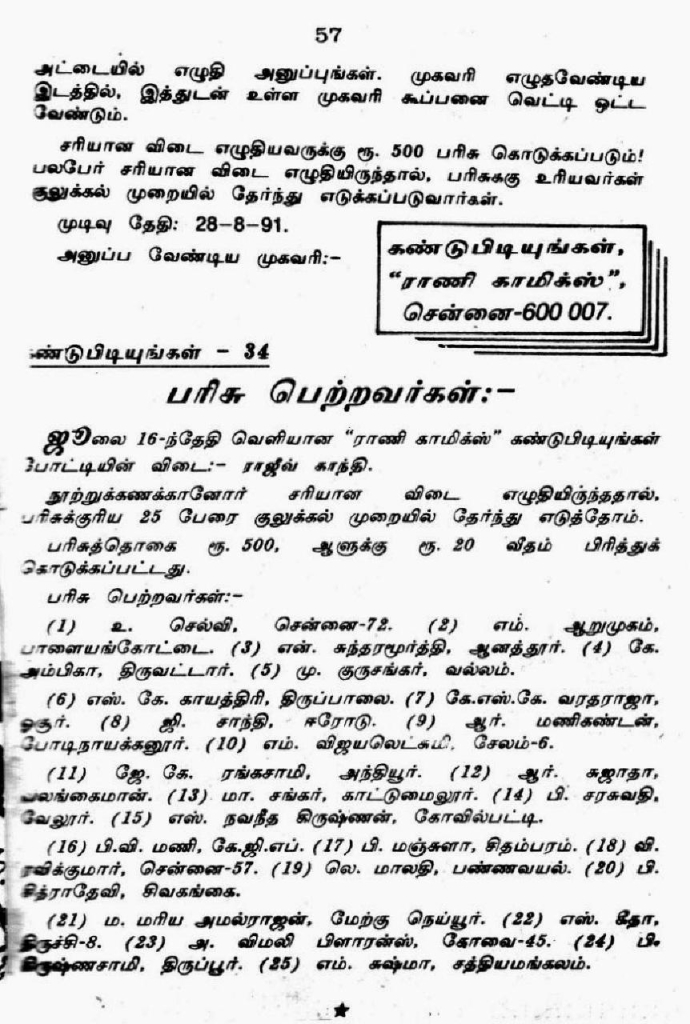 57
அட்டையில் எழுதி அனுப்புங்கள். முகவரி எழுதவேண்டிய
இடத்தில், இத்துடன் உள்ள முகவரி கூப்பனை வெட்டி ஒட்ட
வேண்டும்.
சரியான விடை எழுதியவருக்கு ரூ. 500 பரிசு கொடுக்கப்படும்!
பலபேர் சரியான விடை எழுதியிருந்தால், பரிசுக்கு உரியவர்கள்
குலுக்கல் முறையில் தேர்ந்து எடுக்கப்படுவார்கள்.
முடிவு தேதி: 28-8-91.
அனுப்ப வேண்டிய முகவரி:-
கண்டுபிடியுங்கள்,
“ராணி காமிக்ஸ்”,
சென்னை-600 007.
கண்டுபிடியுங்கள் - 34
பரிசு பெற்றவர்கள்:-
ஜூலை 16-ந்தேதி வெளியான “ராணி காமிக்ஸ்” கண்டுபிடியுங்கள்
போட்டியின் விடை:- ராஜீவ் காந்தி.
நூற்றுக்கணக்கானோர் சரியான விடை எழுதியிருந்ததால்,
பரிசுக்குரிய 25 பேரை குலுக்கல் முறையில் தேர்ந்து எடுத்தோம்.
பரிசுத்தொகை ரூ. 500, ஆளுக்கு ரூ. 20 வீதம் பிரித்துக்
கொடுக்கப்பட்டது.
பரிசு பெற்றவர்கள்:-
(1) உ. செல்வி, சென்னை-72. (2) எம். ஆறுமுகம்,
பாளையங்கோட்டை. (3) என். சுந்தரமூர்த்தி, ஆனத்தூர். (4) கே.
அம்பிகா, திருவட்டார். (5) மு. குருசங்கர், வல்லம்.
(6) எஸ். கே. காயத்திரி, திருப்பாலை. (7) கே.எஸ்.கே. வரதராஜா,
ஓசூர். (8) ஜி. சாந்தி, ஈரோடு. (9) ஆர். மணிகண்டன்,
போடிநாயக்கனூர். (10) எம். விஜயலெட்சுமி, சேலம்-6.
(11) ஜே. கே. ரங்கசாமி, அந்தியூர். (12) ஆர். சுஜாதா,
வலங்கைமான். (13) மா. சங்கர், காட்டுமைலூர். (14) பி. சரசுவதி,
வேலூர். (15) எஸ். நவநீத கிருஷ்ணன், கோவில்பட்டி.
(16) பி.வி. மணி, கே.ஜி.எப். (17) பி. மஞ்சுளா, சிதம்பரம். (18) வி.
ரவிக்குமார், சென்னை-57. (19) லெ. மாலதி, பண்ணவயல். (20) பி.
சித்ராதேவி, சிவகங்கை.
(21) ம. மரிய அமல்ராஜன், மேற்கு நெய்யூர். (22) எஸ். கீதா,
திருச்சி-8. (23) அ. விமலி பிளாரன்ஸ், கோவை-45. (24) பி.
கிருஷ்ணசாமி, திருப்பூர். (25) எம். சுஷ்மா, சத்தியமங்கலம்.